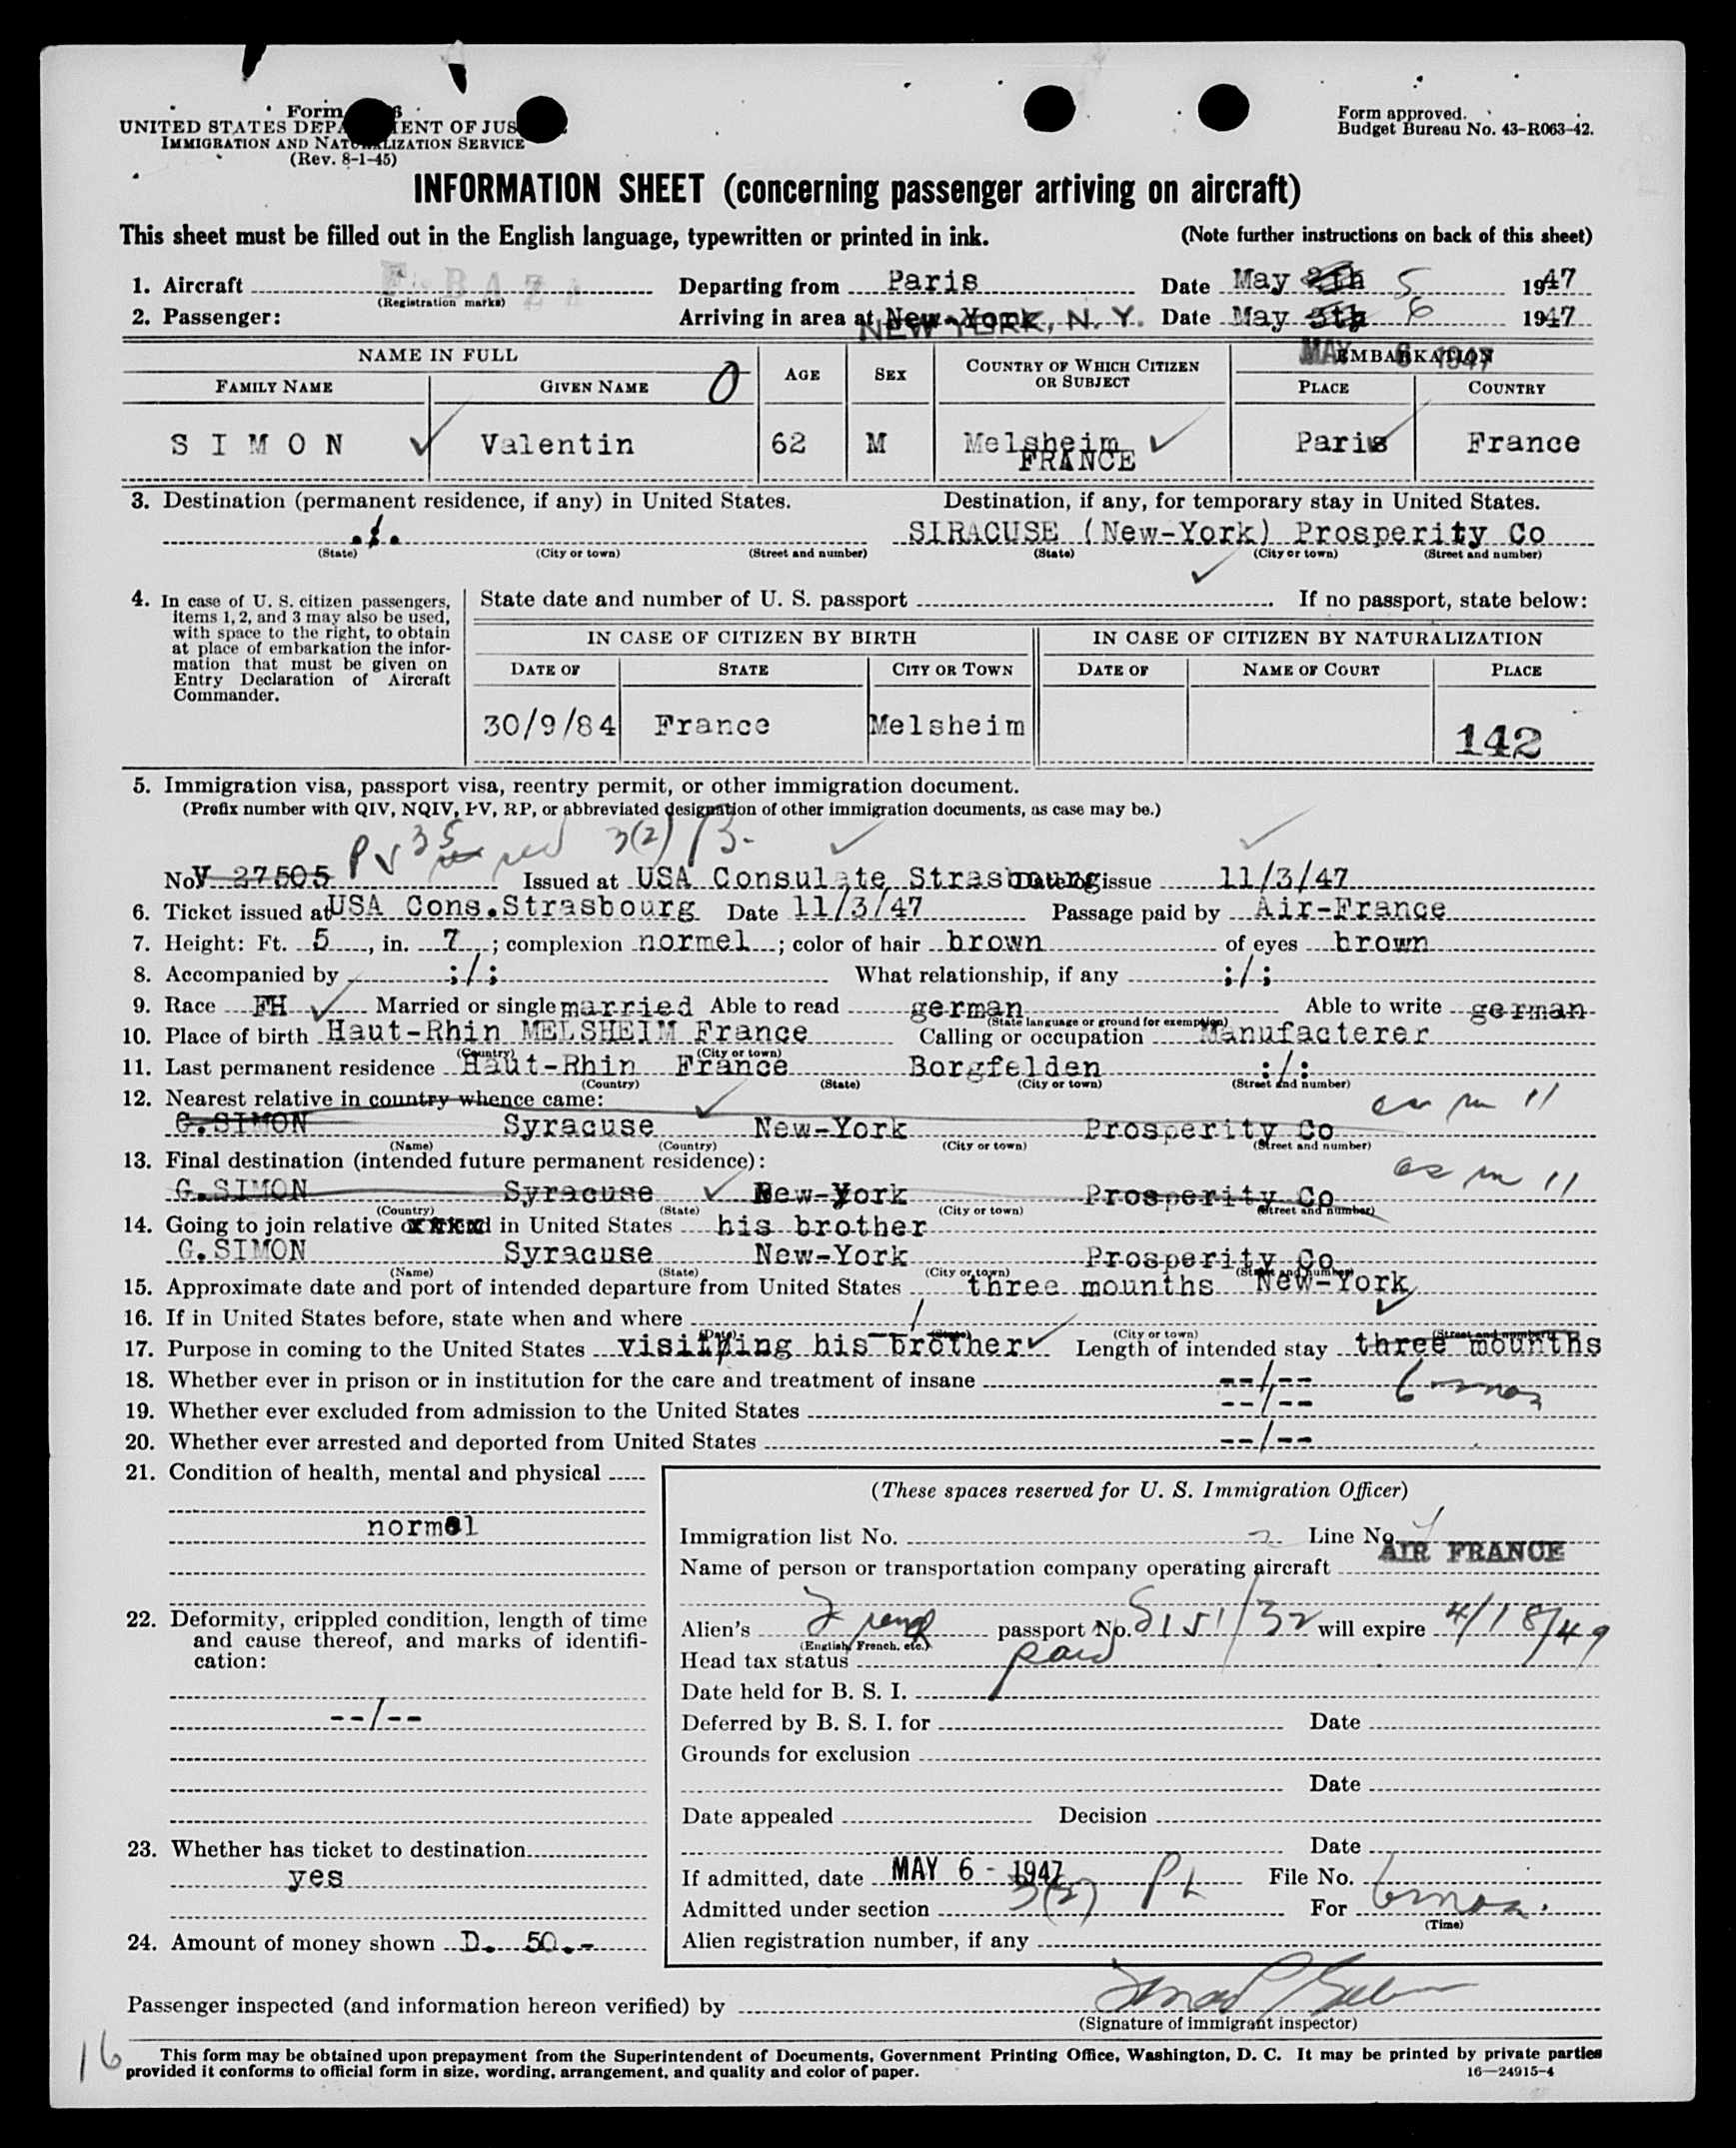 Form
UNITED STATES DEPARTMENT OF JUSTICE
IMMIGRATION AND NATURALIZATION SERVICE
(Rev. 8-1-45)
Form approved.
Budget Bureau No. 43-R063-42.
INFORMATION SHEET (concerning passenger arriving on aircraft)
This sheet must be filled out in the English language, typewritten or printed in ink. (Note further instructions on back of this sheet)
1. Aircraft F-BAZA Departing from Paris Date May 5 1947
(Registration marks)
2. Passenger: Arriving in area at New-York Date May 5th 6 1947
NEW YORK, N. Y.
MAY 6 1947
NAME IN FULL AGE SEX COUNTRY OF WHICH CITIZEN OR SUBJECT EMBARKATION
FAMILY NAME GIVEN NAME 0 PLACE COUNTRY
S I M O N Valentin 62 M Melsheim Paris France
FRANCE
3. Destination (permanent residence, if any) in United States. Destination, if any, for temporary stay in United States.
./. SIRACUSE (New-York) Prosperity Co
(State) (City or town) (Street and number) (State) (City or town) (Street and number)
4. In case of U. S. citizen passengers, items 1, 2, and 3 may also be used, with space to the right, to obtain at place of embarkation the information that must be given on Entry Declaration of Aircraft Commander.
State date and number of U. S. passport If no passport, state below:
IN CASE OF CITIZEN BY BIRTH IN CASE OF CITIZEN BY NATURALIZATION
DATE OF STATE CITY OR TOWN DATE OF NAME OF COURT PLACE
30/9/84 France Melsheim 142
5. Immigration visa, passport visa, reentry permit, or other immigration document.
(Prefix number with QIV, NQIV, PV, RP, or abbreviated designation of other immigration documents, as case may be.)
PV 35 3(2)
No. V 27505 Issued at USA Consulate Strasbourg Date of issue 11/3/47
6. Ticket issued at USA Cons.Strasbourg Date 11/3/47 Passage paid by Air-France
7. Height: Ft. 5, in. 7; complexion normel; color of hair brown of eyes brown
8. Accompanied by ;/; What relationship, if any ;/;
9. Race FH Married or single married Able to read german Able to write german
(State language or ground for exemption)
10. Place of birth Haut-Rhin MELSHEIM France Calling or occupation Manufacterer
(Country) (City or town)
11. Last permanent residence Haut-Rhin France Borgfelden :/:
(Country) (State) (City or town) (Street and number)
12. Nearest relative in country whence came: as in 11
G.SIMON Syracuse New-York Prosperity Co
(Name) (Country) (City or town) (Street and number)
13. Final destination (intended future permanent residence): as in 11
G.SIMON Syracuse New-york Prosperity Co
(Country) (State) (City or town) (Street and number)
14. Going to join relative or friend in United States his brother
G.SIMON Syracuse New-York Prosperity Co
(Name) (State) (City or town) (Street and number)
15. Approximate date and port of intended departure from United States three mounths New-York
16. If in United States before, state when and where /
(Date) (State) (City or town) (Street and number)
17. Purpose in coming to the United States visiting his brother Length of intended stay three mounths
18. Whether ever in prison or in institution for the care and treatment of insane --/-- 6 mos
19. Whether ever excluded from admission to the United States --/--
20. Whether ever arrested and deported from United States --/--
21. Condition of health, mental and physical
normal
22. Deformity, crippled condition, length of time and cause thereof, and marks of identification:
--/--
23. Whether has ticket to destination
yes
24. Amount of money shown D. 50.-
(These spaces reserved for U. S. Immigration Officer)
Immigration list No. 2 Line No.
AIR FRANCE
Name of person or transportation company operating aircraft
Alien's French passport No. 5151/32 will expire 4/18/49
(English, French, etc.)
Head tax status paid
Date held for B. S. I.
Deferred by B. S. I. for Date
Grounds for exclusion
Date
Date appealed Decision
Date
If admitted, date MAY 6 - 1947 File No.
Admitted under section 3(2) For 6 mos.
(Time)
Alien registration number, if any
Passenger inspected (and information hereon verified) by
(Signature of immigrant inspector)
16
This form may be obtained upon prepayment from the Superintendent of Documents, Government Printing Office, Washington, D. C. It may be printed by private parties
provided it conforms to official form in size, wording, arrangement, and quality and color of paper. 16—24915-4